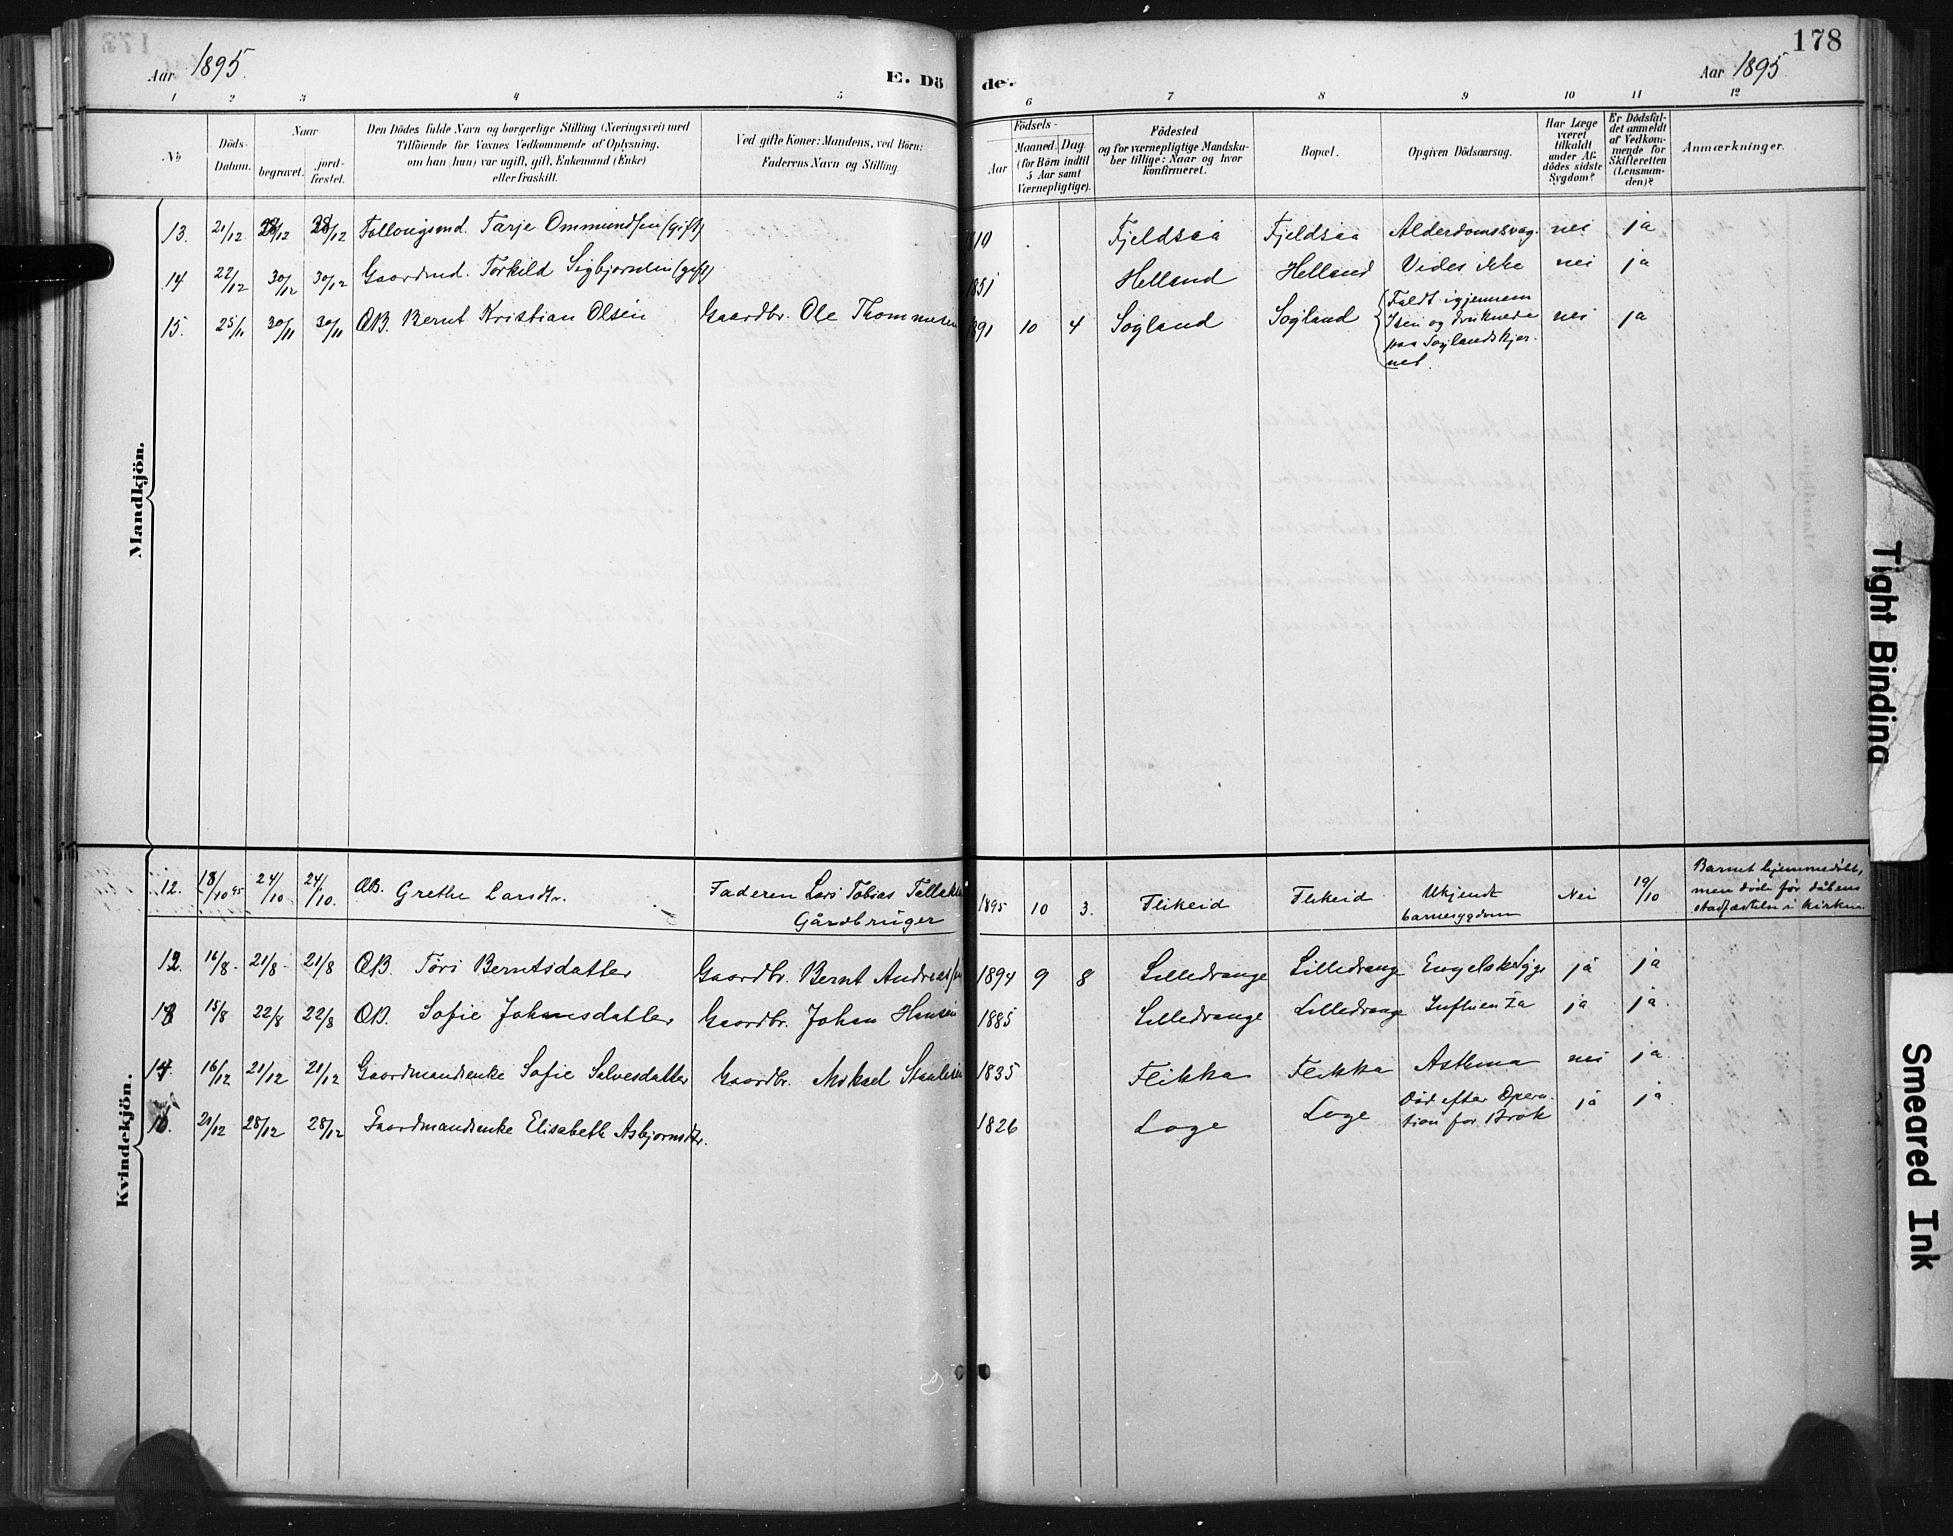 178
Aar 1895.
E. Dö de.
Aar 1895.
1 2 3 4 5 6 7 8 9 10 11 12
No
Döds-Datum.
Naar
begravet.
jord-fæstet.
Den Dödes fulde Navn og borgerlige Stilling (Næringsvei) med
Tilföiende for Voxnes Vedkommende af Oplysning,
om han (hun) var ugift, gift, Enkemand (Enke)
eller fraskilt.
Ved gifte Koner: Mandens, ved Börn:
Faderens Navn og Stilling.
Födsels-
Aar
Maaned. Dag
(for Börn indtil
5 Aar samt
Værnepligtige).
Födested
og for værnepligtige Mandska-
ber tillige: Naar og hvor
konfirmeret.
Bopæl.
Opgiven Dödsaarsag.
Har Læge
været
tilkaldt
under Af-
dödes sidste
Sygdom?
Er Dödsfal-
det anmeldt
af Vedkom-
mende for
Skifteretten
(Lensman-
den)?
Anmærkninger.
Mandkjön.
13. 21/12 28/12 28/12 Tarje Ommundsen (gift) Fjeldsaa Fjeldsaa Alderdomssvag. nei ja
14 22/12 30/12 30/12 Gaardmd. Torkild Sigbjørnsen (gift) 1851 Helland Helland Vides ikke nei ja
15. 25/11 30/11 30/11 ÆB. Bernt Kristian Olsen Gaardbr. Ole Thommesen 1891 10 4 Søgland Søgland Faldt igjennem
Isen og druknede nei ja
paa Søglandskjær-
net.
Kvindekjön.
12. 18/10 95 24/10 24/10. ÆB. Grethe Larsdtr. Faderen Lars Tobias
Gårdbruger 1895 10 3. Flikeid Flikeid Ukjendt
barnesygdom Nei 19/10 Barnet hjemmedøbt,
men døde før dåbens
stadfæstelse i kirken
12. 16/8. 21/8. 21/8 ÆB. Tori Berntsdatter Gaardbr. Bernt Andreassen 1894 9 8 Lilledrange Lilledrange Engelsk Syge ja ja
13 15/8 22/8 22/8 ÆB. Sofie Johansdatter Gaardbr. Johan Hansen 1885 Lilledrange Lilledrange Influenza ja ja.
14. 16/12 21/12 21/12 Gaardmandsenke Sofie Salvesdatter Gaardbr. Mikael 1835 Flikka Flikka Asthma nei ja
21/12 28/12 28/12 Gaardmandsenke Elisabeth Asbjørnsdtr. 1826 Loge Loge Død efter Opera-
tion for Brok ja ja.
Tight Binding
Smeared Ink